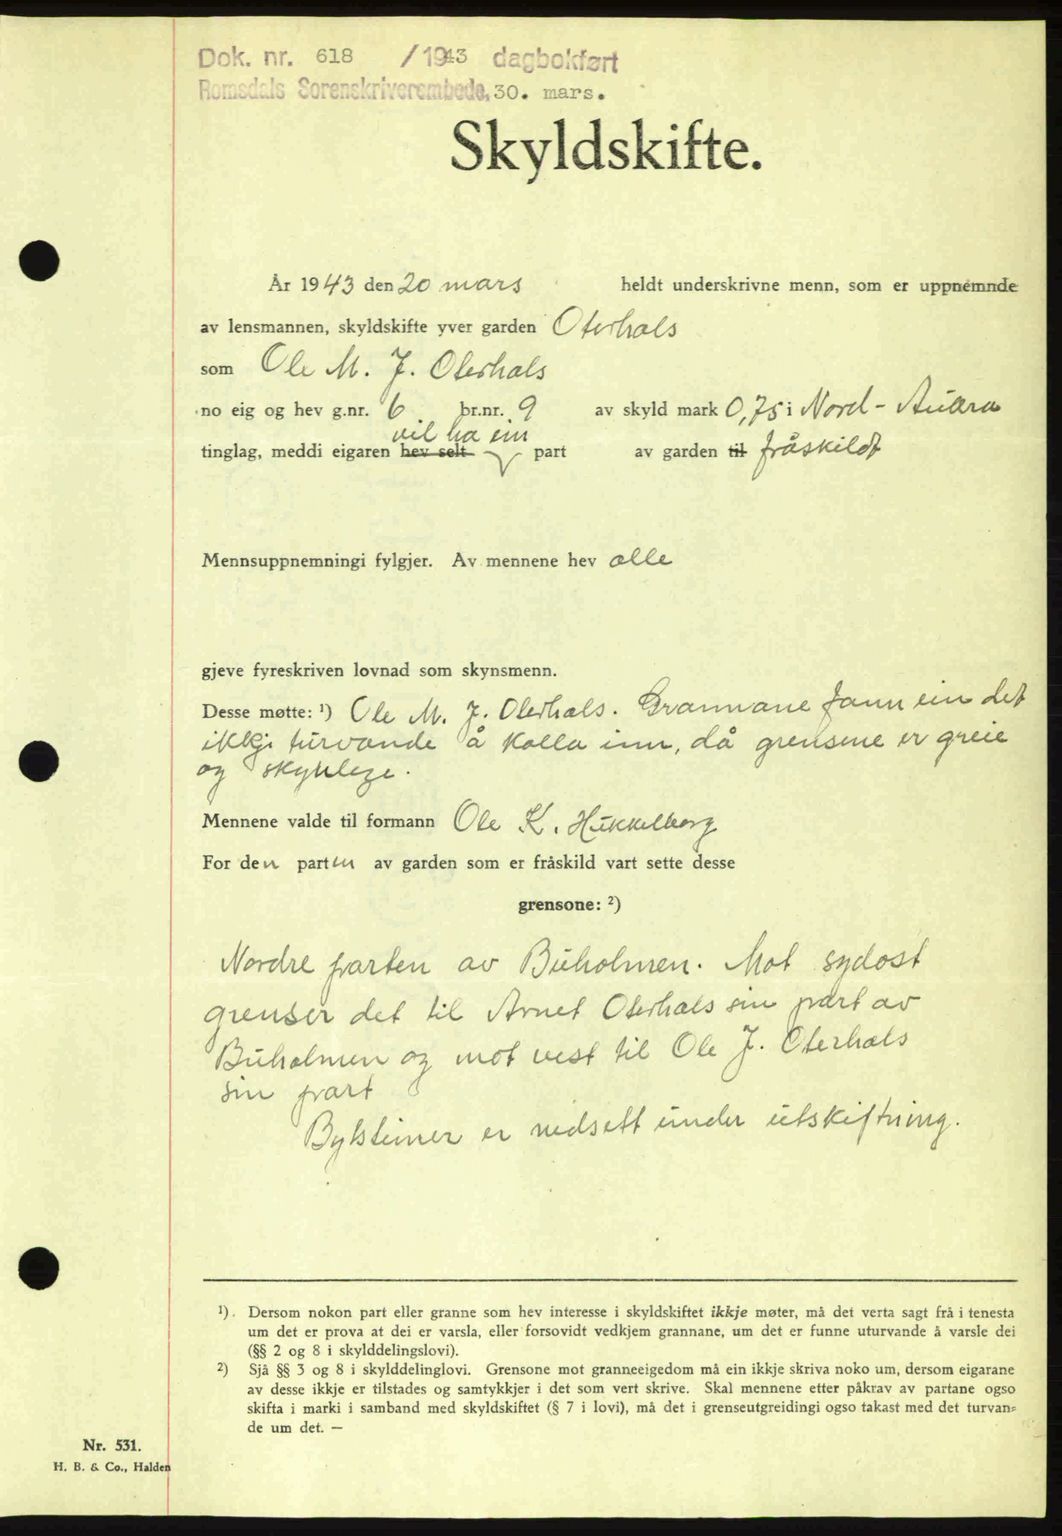 Dok. nr. 618 /1943 dagbokført
Romsdals Sorenskriverembede, 30. mars.
Skyldskifte.
År 1943 den 20 mars heldt underskrivne menn, som er uppnemnde
av lensmannen, skyldskifte yver garden Oterhals
som Ole M. J. Oterhals
no eig og hev g.nr. 6 br.nr. 9 av skyld mark 0,75 i Nord-Aukra
vil ha ein
tinglag, meddi eigaren hev selt part av garden til fråskildt
Mennsuppnemningi fylgjer. Av mennene hev alle
gjeve fyreskriven lovnad som skynsmenn.
Desse møtte: ¹) Ole M. J. Oterhals. Grannane fann ein det
ikkje turvande å kalla inn, då grensene er greie
og skynlege.
Mennene valde til formann Ole K. Hukkelberg
For den parten av garden som er fråskild vart sette desse
grensone: ²)
Nordre parten av Buholmen. Mot sydost
grenser det til Arnet Oterhals sin part av
Buholmen og mot vest til Ole J. Oterhals
sin part
Bytsteiner er nedsett under utskiftning.
¹). Dersom nokon part eller granne som hev interesse i skyldskiftet ikkje møter, må det verta sagt frå i tenesta
um det er prova at dei er varsla, eller forsovidt vedkjem grannane, um det er funne uturvande å varsle dei
(§§ 2 og 8 i skylddelingslovi).
²) Sjå §§ 3 og 8 i skylddelinglovi. Grensone mot granneeigedom må ein ikkje skriva noko um, dersom eigarane
av desse ikkje er tilstades og samtykkjer i det som vert skrive. Skal mennene etter påkrav av partane ogso
skifta i marki i samband med skyldskiftet (§ 7 i lovi), må det i grenseutgreidingi ogso takast med det turvan=
de um det. —
Nr. 531.
H. B. & Co., Halden